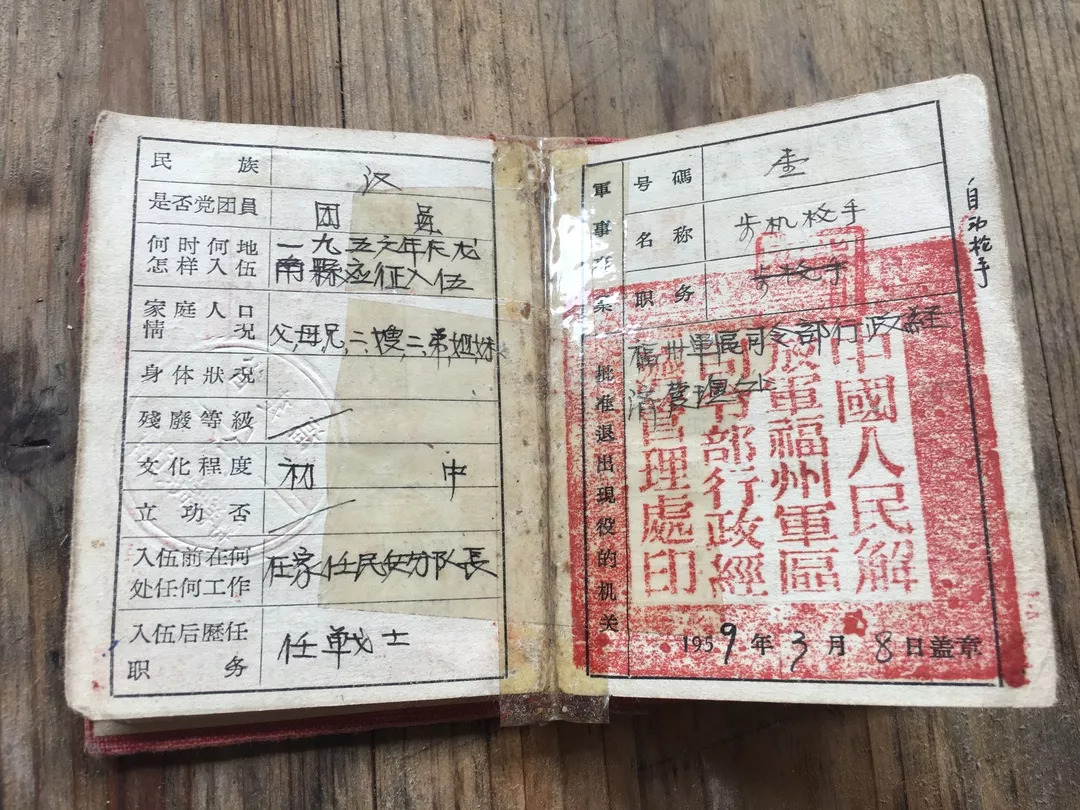 民族 汉
是否党团員 团員
何时何地 一九五六年在龙
怎样入伍 南縣应征入伍
家庭人口
情况 父,母,兄,二,嫂,二,弟,姐,妹
身体狀况
殘廢等級
文化程度 初中
立功否
入伍前在何 在家任民兵分队長
处任何工作
入伍后歷任 任戰士
职务
軍事 号碼 壹
名称 步机枪手
职务 步枪手
自动枪手
批准退出現役的机关
福州軍區司令部行政経
済管理处
中國人民解
放軍福州軍區
司令部行政經
濟管理處印
1959年3月8日盖章